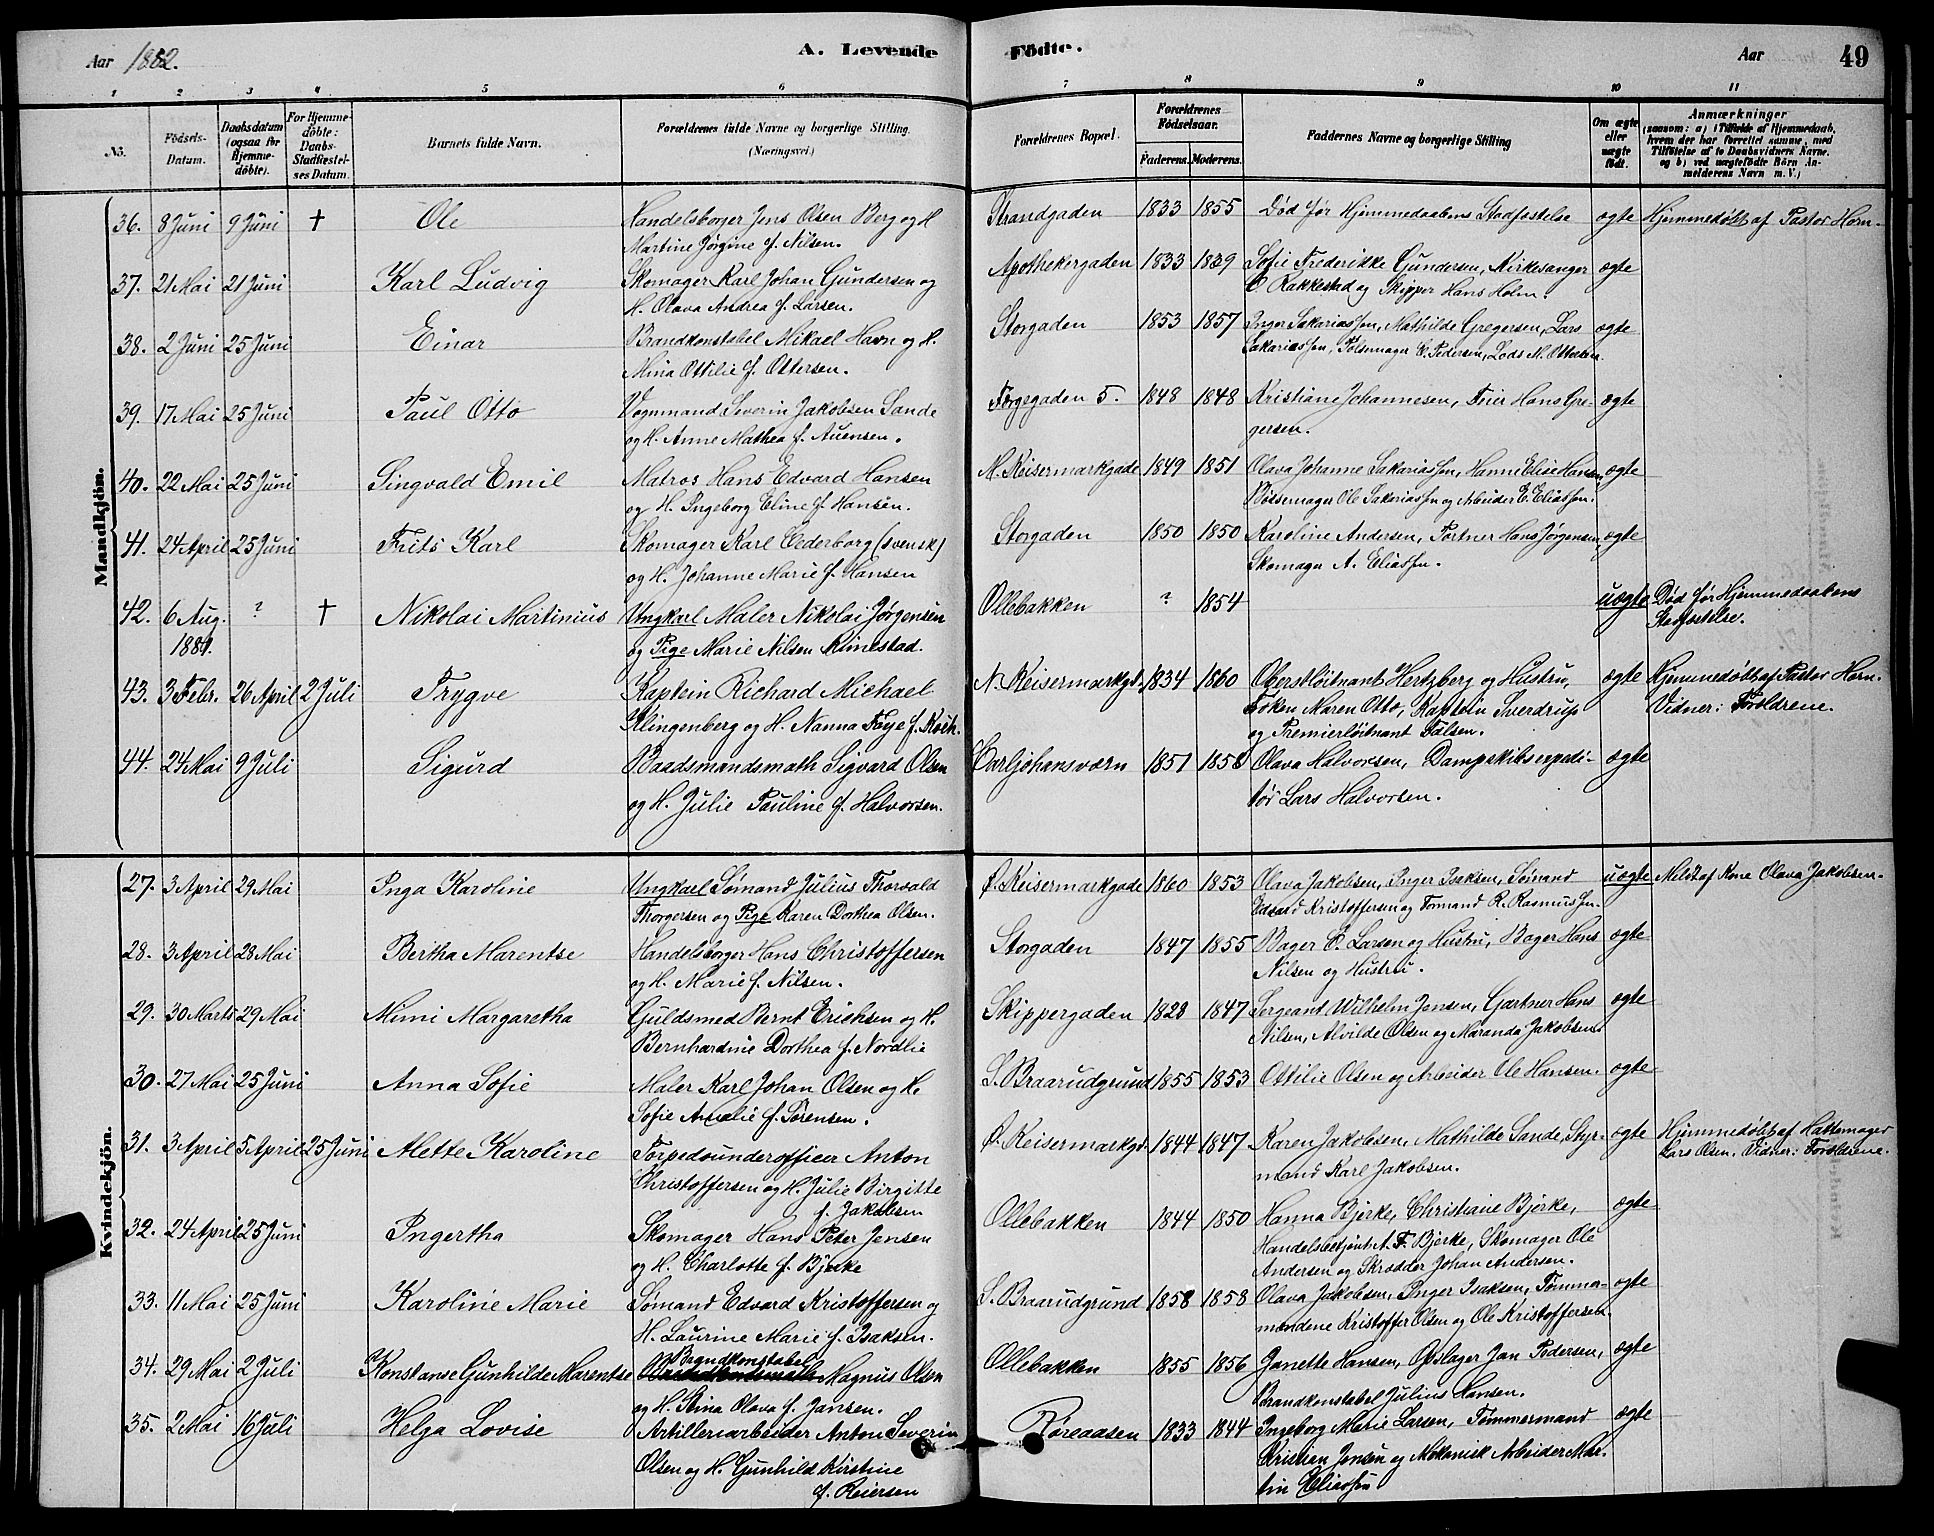 Aar 1882.
A. Levende
Födte.
Aar
49
1 2 3 4 5 6 7 8 9 10 11
No.
Födsels-Datum.
Daabsdatum (ogsaa for Hjemmedøbte).
For Hjemmedøbte: Daabs-Stadfæstelses Datum.
Barnets fulde Navn.
Forældrenes fulde Navne og borgerlige Stilling.
(Næringsvei.)
Forældrenes Bopæl.
Forældrenes Fødselsaar.
Faderens. Moderens.
Faddernes Navne og borgerlige Stilling
Om ægte eller uægte født.
Anmærkninger
(saasom: a) i Tilfælde af Hjemmedaab, hvem der har forrettet samme, med Tilføielse af to Daabsvidners Navne, og b) ved uægtefødte Börn Anmelderens Navn m. V.)
Mandkjön.
36. 8 Juni 9 Juni † Ole Handelsborger Jens Olsen Berg og H. Strandgaden 1833 1855 Död før Hjemmedaabens Stadfæstelse ægte Hjemmedøbt af Pastor Horn.
Martine Jørgine f. Nilsen.
37. 21 Mai 21 Juni Karl Ludvig Skomager Karl Johan Gundersen og Apothekergaden 1833 1839 Sofie Frederikke Gundersen, Kirkesanger ægte
H. Olava Andrea f. Larsen. C. Rakkestad og Skipper Hans Holm.
38. 2 Juni 25 Juni Einar Brandkonstabel Mikael Havn og H. Storgaden 1853 1857 Inger Sakariassen, Mathilde Gregersen, Lars ægte
Mina Ottilie f. Ottersen. Sakariassen, Pølsemager C. Pedersen, Lods M. Ottersen.
39. 17 Mai 25 Juni Paul Otto Vognmand Severin Jakobsen Sande Færgegaden 5. 1848 1848 Kristiane Johannesen, Feier Hans Gre- ægte
og H. Anne Mathea f. Auensen. gersen.
40. 22 Mai 25 Juni Singvald Emil Matros Hans Edvard Hansen M. Keisermarkgade 1849 1851 Olava Johanne Sakariassen, Hanne Elise Hansen ægte
og H. Ingeborg Eline f. Hansen. Bøssemager Ole Sakariassen og Arbeider E. Eliassen.
41. 24 April 25 Juni Frits Karl Skomager Karl Cederborg (svensk) Storgaden 1850 1850 Karoline Andersen, Portner Hans Jørgensen, ægte
og H. Johanne Marie f. Hansen Skomager A. Eliassen.
42. 6 Aug. ? † Nikolai Martinius Ungkarl Maler Nikolai Jørgensen Ollebakken ? 1854 uægte Død før Hjemmedaabens
1881. og Pige Marie Nilsen Rimestad. Stadfæstelse.
43. 3 Febr. 26 April 2 Juli Trygve Kaptein Richard Michael N. Keisermarkgd. 1834 1860 Oberstløitnant Hertzberg og Hustru, ægte Hjemmedøbt af Pastor Horn.
Klingenberg og H. Nanna Føye f. Koch. Frøken Maren Otto, Kaptein Sverdrup Vidner: Forældrene.
og Premierløitnant Falsen.
44. 24 Mai 9 Juli Sigurd Baadsmandsmath Sigvard Olsen Carljohansværn 1851 1858 Olava Halvorsen, Dampskibsexpedi- ægte
og H. Julie Pauline f. Halvorsen. tør Lars Halvorsen.
Kvindekjön.
27. 3 April 29 Mai Inga Karoline Ungkarl Sømand Julius Thorvald Ø. Keisermarkgade 1860 1853 Olava Jakobsen, Inger Isaksen, Sømand uægte Meldt af Kone Olava Jakobsen.
Thorgersen og Pige Karen Dorthea Olsen. Edvard Kristoffersen og Tømmand R. Rasmussen.
28. 3 April 28 Mai Bertha Marentse Handelsborger Hans Christoffersen Storgaden 1847 1855 Bager O. Larsen og Hustru, Bager Hans ægte
og H. Marie f. Nilsen. Nilsen og Hustru.
29. 30 Marts 29 Mai Mimi Margaretha Guldsmed Bernt Erichsen og H. Skippergaden 1828 1847 Sergeant Wilhelm Jensen, Gartner Hans ægte
Bernhardine Dorthea f. Nordlie Nilsen, Alvilde Olsen og Maranda Jakobsen.
30. 27 Mai 25 Juni Anna Sofie Maler Karl Johan Olsen og H. S. Braarudgrund 1855 1853 Ottilie Olsen og Arbeider Ole Hansen. ægte
Sofie Amalie f. Sørensen.
31. 3 April 5 April 25 Juni Alette Karoline Torpedounderofficer Anton Ø. Keisermarkgd. 1844 1847 Karen Jakobsen, Mathilde Sande, Styr- ægte Hjemmedøbt af Hattemager
Christoffersen og H. Julie Birgitte mand Karl Jakobsen. Lars Olsen. Vidner: Forældrene.
f. Jakobsen
32. 24 April 25 Juni Ingertha Skomager Hans Peter Jensen Ollebakken 1844 1850 Hanna Bjerke, Christiane Bjerke, ægte
og H. Charlotte f. Bjerke Handelsbetjent A. F. Bjerke, Skomager Ole
Andersen og Skrædder Johan Andersen.
33. 11 Mai 25 Juni Karoline Marie Sømand Edvard Kristoffersen og S. Braarudgrund 1858 1858 Olava Jakobsen, Inger Isaksen, Tømmer- ægte
H. Laurine Marie f. Isaksen. mændene Kristoffer Olsen og Ole Kristoffersen.
34. 29 Mai 2 Juli Konstanse Gunhilde Marentse Brandkonstabel Magnus Olsen Ollebakken 1855 1856 Janette Hansen, Opslager Jan Pedersen, ægte
og H. Stina Olava f. Jansen. Brandkonstabel Julius Hansen.
35. 2 Mai 16 Juli Helga Lovise Artilleriarbeider Anton Severin Røreaasen 1833 1844 Ingeborg Marie Larsen, Tømmermand ægte
Olsen og H. Gunhild Kirstine Kristian Jensen og Mekanisk Arbeider Mar-
f. Reiersen tin Eliassen